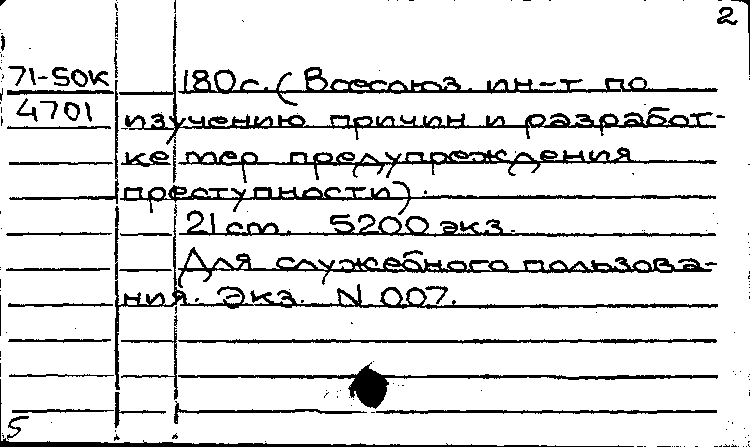 2
71-50к 180 с. (Всесоюз. ин-т по
4701 изучению причин и разработ-
ке мер предупреждения
преступности).
21 см. 5200 экз.
Для служебного пользова-
ния. Экз. N 007.
5